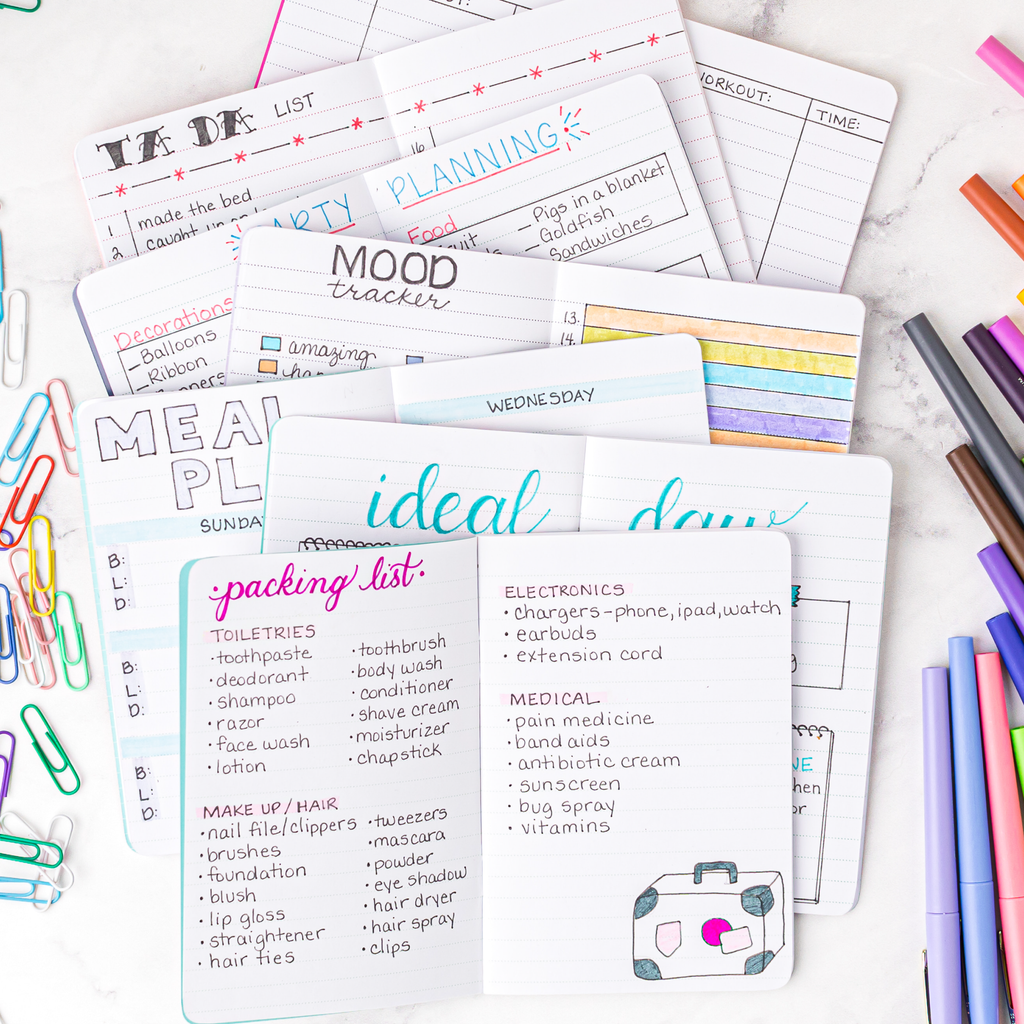 WORKOUT:
TIME:
TA DA LIST
16
1 made the bed
2 caught up on
PARTY PLANNING
Food
Fruit
– Pigs in a blanket
– Goldfish
– Sandwiches
Decorations
– Balloons
– Ribbon
MOOD
tracker
amazing
13.
14.
MEAL
PL
SUNDAY
B:
L:
D:
B:
L:
D:
B:
L:
D:
WEDNESDAY
ideal day
•packing list•
TOILETRIES
•toothpaste
•deodorant
•shampoo
•razor
•face wash
•lotion
•toothbrush
•body wash
•conditioner
•shave cream
•moisturizer
•chapstick
MAKE UP/HAIR
•nail file/clippers
•brushes
•foundation
•blush
•lip gloss
•straightener
•hair ties
•tweezers
•mascara
•powder
•eye shadow
•hair dryer
•hair spray
•clips
ELECTRONICS
•chargers–phone, ipad, watch
•earbuds
•extension cord
MEDICAL
•pain medicine
•band aids
•antibiotic cream
•sunscreen
•bug spray
•vitamins